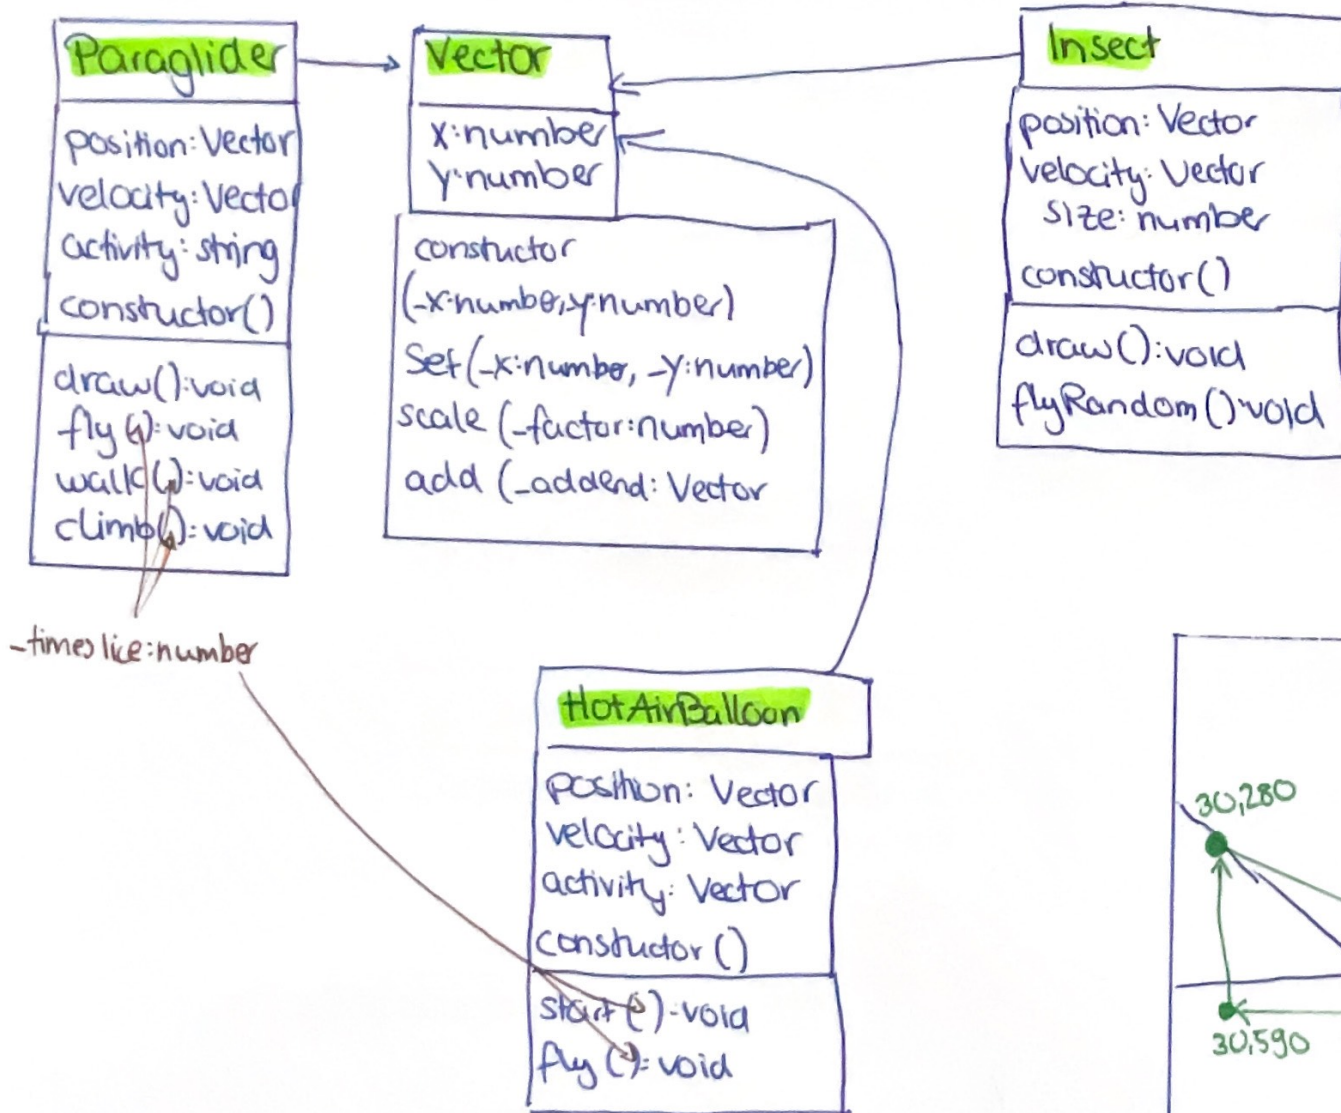 Paraglider
position: Vector
velocity: Vecto
activity: string
constuctor()
draw(): void
fly(): void
walk(): void
climb(): void
_timeslice: number
Vector
x: number
y: number
constuctor
(_x: number, y: number)
Set(_x: number, _y: number)
scale (_factor: number)
add (_addend: Vector
Insect
position: Vector
velocity: Vector
size: number
constuctor()
draw(): void
flyRandom(): void
HotAirBalloon
position: Vector
velocity: Vector
activity: Vector
constuctor()
start(): void
fly(): void
30,280
30,590